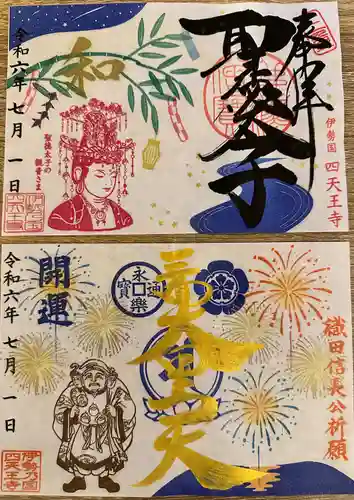 奉拝
聖徳太子
伊勢国 四天王寺
和
聖徳太子の
観音さま
令和六年 七月 一日
織田信長公祈願
永樂通寶
開運
令和六年 七月 一日
伊勢乃国
四天王寺